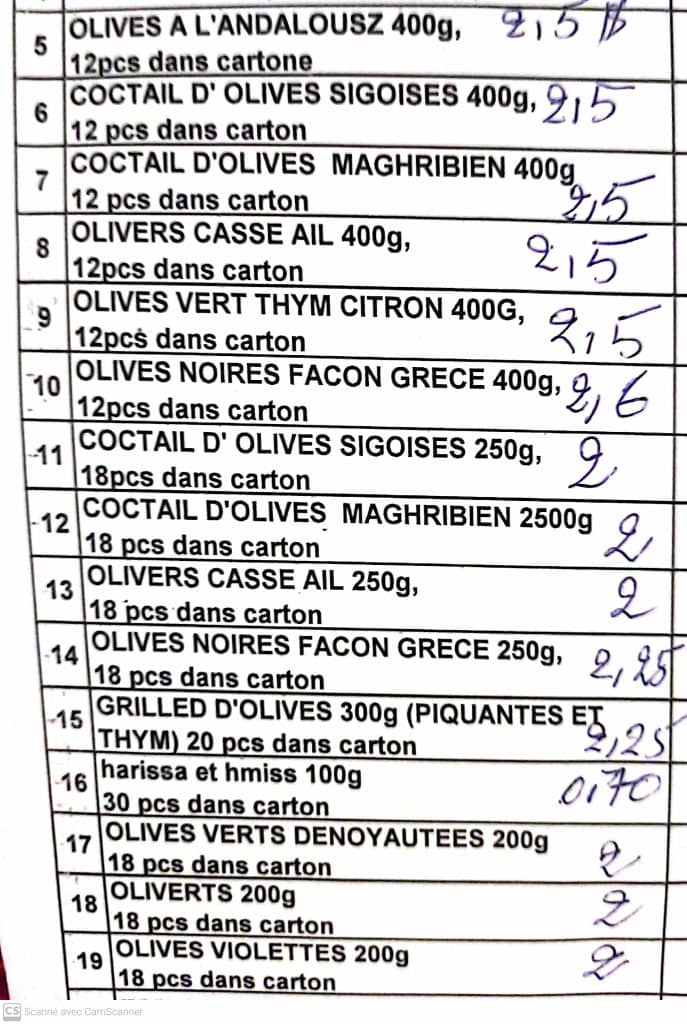 5 OLIVES A L'ANDALOUSZ 400g, 2,5 $
12pcs dans cartone
6 COCTAIL D' OLIVES SIGOISES 400g, 2,5
12 pcs dans carton
7 COCTAIL D'OLIVES MAGHRIBIEN 400g
12 pcs dans carton 2,5
8 OLIVERS CASSE AIL 400g, 2,5
12pcs dans carton
9 OLIVES VERT THYM CITRON 400G, 2,5
12pcs dans carton
10 OLIVES NOIRES FACON GRECE 400g, 2,6
12pcs dans carton
11 COCTAIL D' OLIVES SIGOISES 250g, 2
18pcs dans carton
12 COCTAIL D'OLIVES MAGHRIBIEN 2500g 2
18 pcs dans carton
13 OLIVERS CASSE AIL 250g, 2
18 pcs dans carton
14 OLIVES NOIRES FACON GRECE 250g, 2,25
18 pcs dans carton
15 GRILLED D'OLIVES 300g (PIQUANTES ET
THYM) 20 pcs dans carton 2,25
16 harissa et hmiss 100g 0,70
30 pcs dans carton
17 OLIVES VERTS DENOYAUTEES 200g 2
18 pcs dans carton
18 OLIVERTS 200g 2
18 pcs dans carton
19 OLIVES VIOLETTES 200g 2
18 pcs dans carton
CS Scanné avec CamScanner